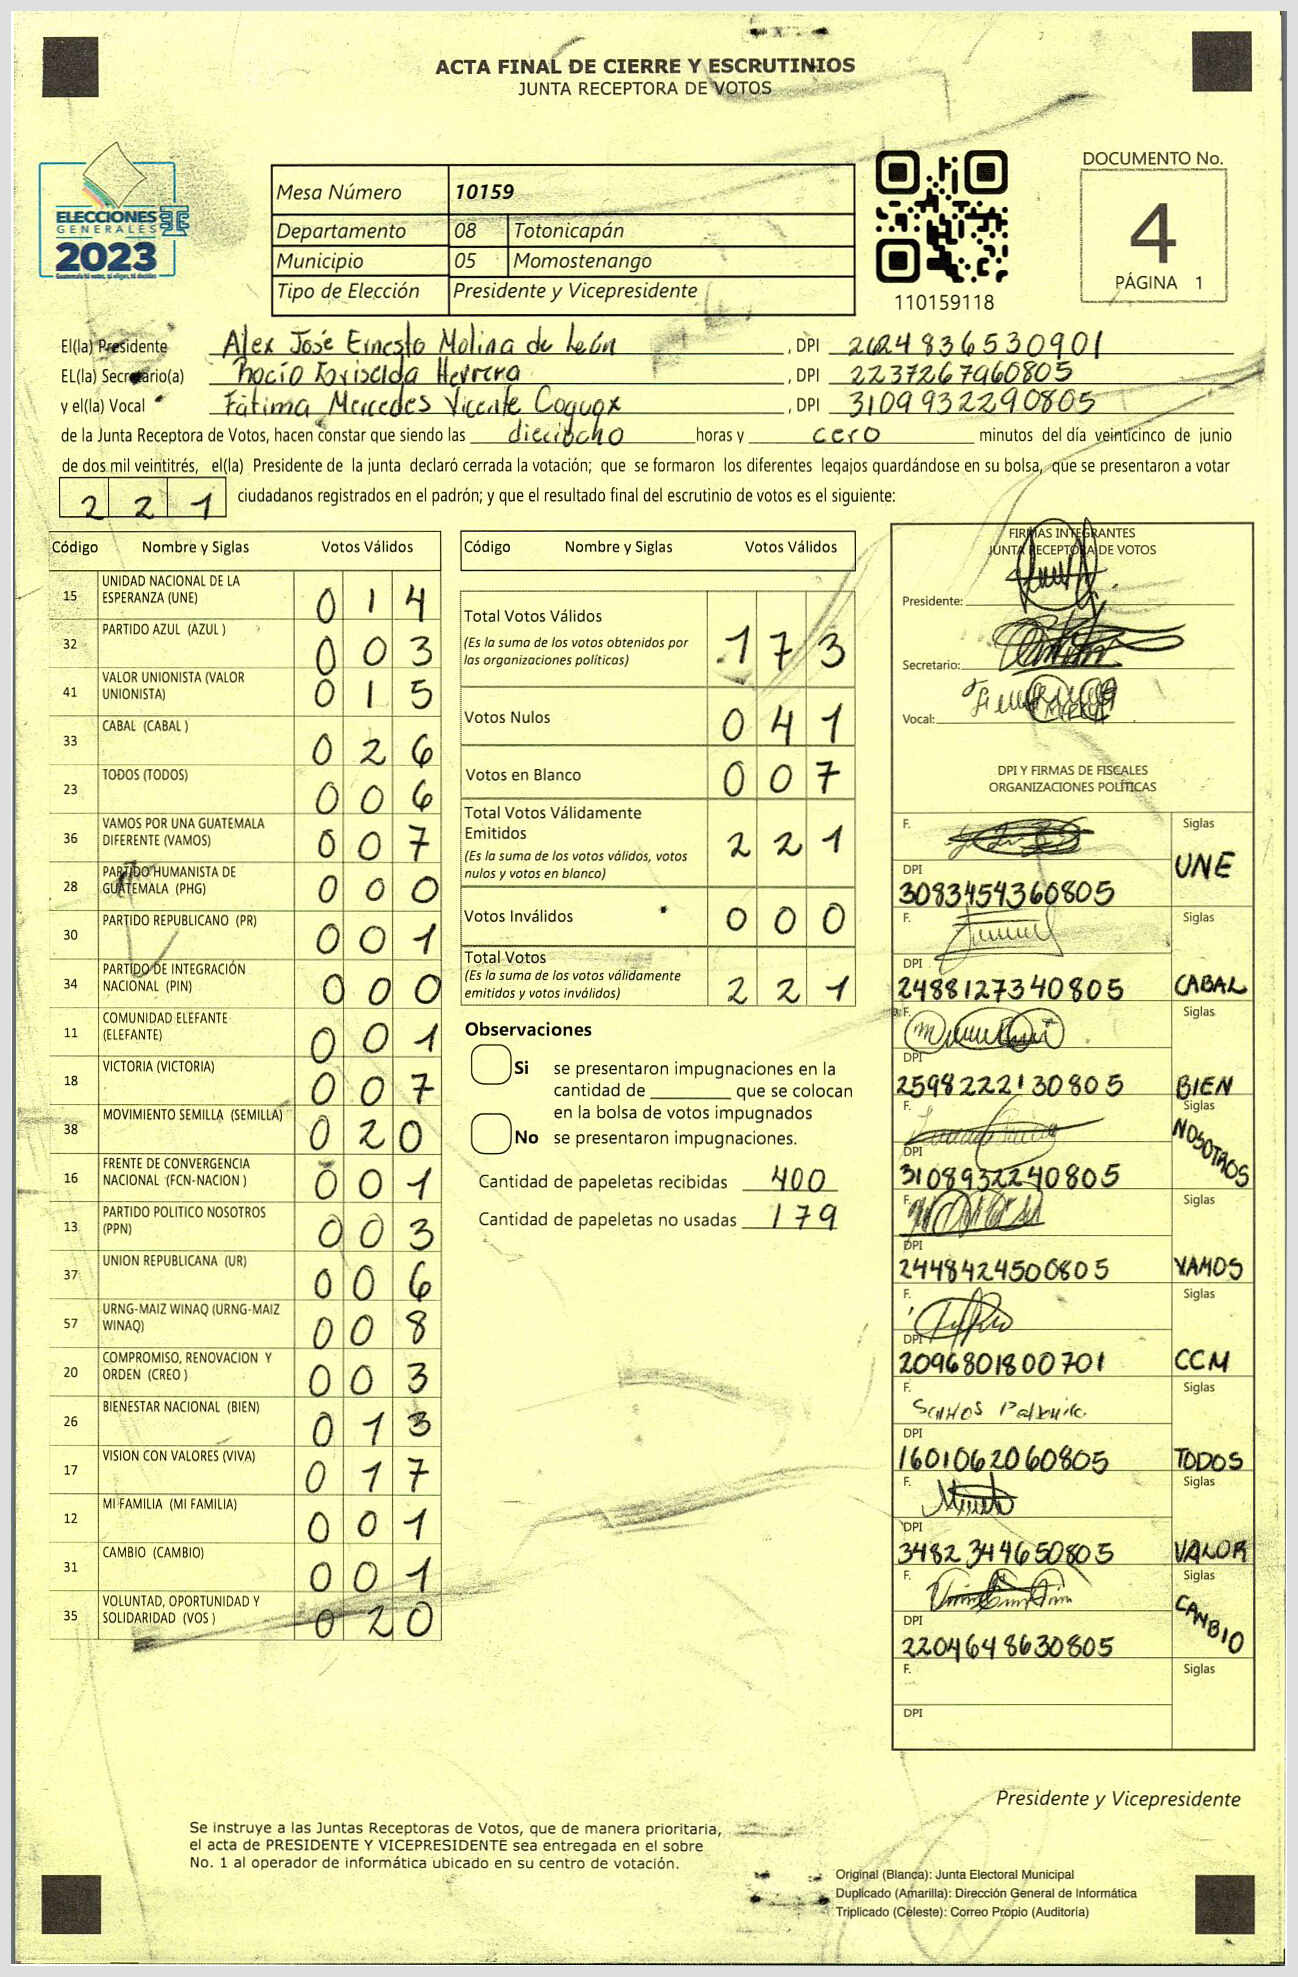 ACTA FINAL DE CIERRE Y ESCRUTINIOS
JUNTA RECEPTORA DE VOTOS
ELECCIONES
GENERALES
2023
Guatemala tú votas, tú eliges, tú decides
Mesa Número 10159
Departamento 08 Totonicapán
Municipio 05 Momostenango
Tipo de Elección Presidente y Vicepresidente
110159118
DOCUMENTO No.
4
PÁGINA 1
El(la) Presidente Alex José Ernesto Molina de León, DPI 2624836530901
EL(la) Secretario(a) Rocío Griselda Herrera, DPI 2237267960805
y el(la) Vocal Fátima Mercedes Vicente Coquox, DPI 3109932290805
de la Junta Receptora de Votos, hacen constar que siendo las dieciocho horas y cero minutos del día veinticinco de junio
de dos mil veintitrés, el(la) Presidente de la junta declaró cerrada la votación; que se formaron los diferentes legajos guardándose en su bolsa, que se presentaron a votar
221 ciudadanos registrados en el padrón; y que el resultado final del escrutinio de votos es el siguiente:
Código Nombre y Siglas Votos Válidos
15 UNIDAD NACIONAL DE LA ESPERANZA (UNE) 014
32 PARTIDO AZUL (AZUL ) 003
41 VALOR UNIONISTA (VALOR UNIONISTA) 015
33 CABAL (CABAL ) 026
23 TODOS (TODOS) 006
36 VAMOS POR UNA GUATEMALA DIFERENTE (VAMOS) 007
28 PARTIDO HUMANISTA DE GUATEMALA (PHG) 000
30 PARTIDO REPUBLICANO (PR) 001
34 PARTIDO DE INTEGRACIÓN NACIONAL (PIN) 000
11 COMUNIDAD ELEFANTE (ELEFANTE) 001
18 VICTORIA (VICTORIA) 007
38 MOVIMIENTO SEMILLA (SEMILLA) 020
16 FRENTE DE CONVERGENCIA NACIONAL (FCN-NACION ) 001
13 PARTIDO POLITICO NOSOTROS (PPN) 003
37 UNION REPUBLICANA (UR) 006
57 URNG-MAIZ WINAQ (URNG-MAIZ WINAQ) 008
20 COMPROMISO, RENOVACION Y ORDEN (CREO ) 003
26 BIENESTAR NACIONAL (BIEN) 013
17 VISION CON VALORES (VIVA) 017
12 MI FAMILIA (MI FAMILIA) 001
31 CAMBIO (CAMBIO) 001
35 VOLUNTAD, OPORTUNIDAD Y SOLIDARIDAD (VOS ) 020
Código Nombre y Siglas Votos Válidos
Total Votos Válidos 173
(Es la suma de los votos obtenidos por
las organizaciones políticas)
Votos Nulos 041
Votos en Blanco 007
Total Votos Válidamente
Emitidos 221
(Es la suma de los votos válidos, votos
nulos y votos en blanco)
Votos Inválidos 000
Total Votos 221
(Es la suma de los votos válidamente
emitidos y votos inválidos)
Observaciones
Si se presentaron impugnaciones en la
cantidad de ________ que se colocan
en la bolsa de votos impugnados
No se presentaron impugnaciones.
Cantidad de papeletas recibidas 400
Cantidad de papeletas no usadas 179
FIRMAS INTEGRANTES
JUNTA RECEPTORA DE VOTOS
Presidente:
Secretario:
Vocal:
DPI Y FIRMAS DE FISCALES
ORGANIZACIONES POLÍTICAS
F. Siglas
DPI UNE
3083454360805
F. Siglas
DPI
2488127340805 CABAL
F. Siglas
DPI
2598222130805 BIEN
F. Siglas
DPI NOSOTROS
3108932240805
F. Siglas
DPI
2448424500805 VAMOS
F. Siglas
DPI
2096801800701 CCM
F. Siglas
Santos
DPI
1601062060805 TODOS
F. Siglas
DPI
3482344650805 VALOR
F. Siglas
DPI CANBIO
2204648630805
F. Siglas
DPI
Presidente y Vicepresidente
Se instruye a las Juntas Receptoras de Votos, que de manera prioritaria,
el acta de PRESIDENTE Y VICEPRESIDENTE sea entregada en el sobre
No. 1 al operador de informática ubicado en su centro de votación.
Original (Blanca): Junta Electoral Municipal
Duplicado (Amarilla): Dirección General de Informática
Triplicado (Celeste): Correo Propio (Auditoría)